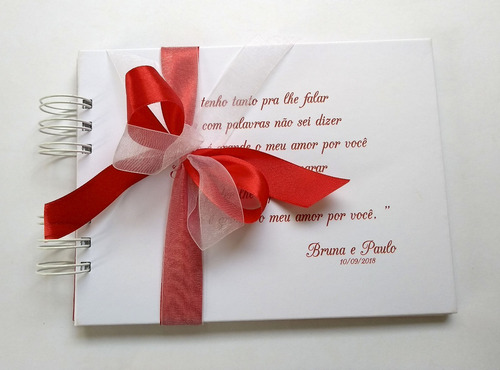 tenho tanto pra lhe falar
com palavras não sei dizer
grande o meu amor por você
o meu amor por você. "
Bruna e Paulo
10/09/2018